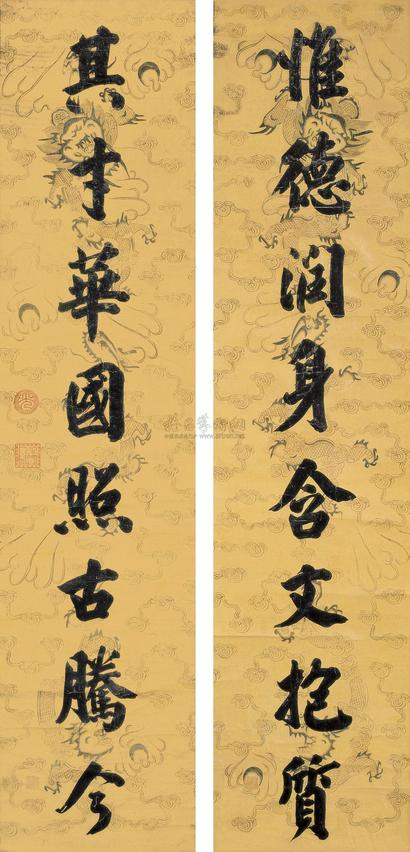 惟德润身含文抱质
其才華國照古騰今